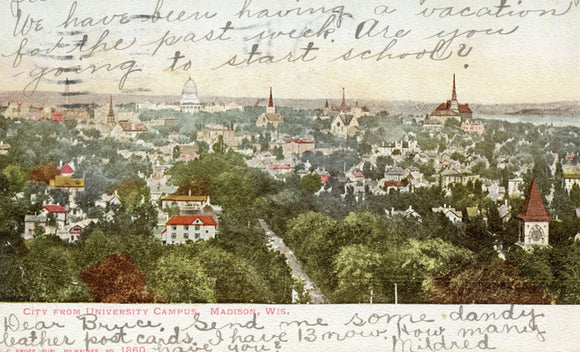 We have been having a "vacation"
for the past week. Are you
going to start school?
CITY FROM UNIVERSITY CAMPUS, MADISON, WIS.
Dear Bruce. Send me some dandy
leather post cards. I have 13 now. How many
have you? Mildred
MILWAUKEE, NO. 1360